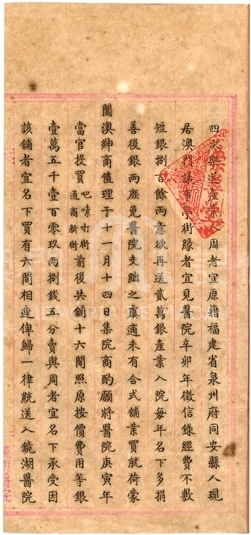 四次樂送產業周者宜原籍福建省泉州府同安縣人現
居澳門議事亭街緣者宜見醫院辛卯年徵信錄經費不敷
短銀捌百餘両意欲再送貳萬銀產業入院每年名下多捐
善後銀両庶免醫院支絀之虞適未有合式舖業買就荷蒙
闔澳紳商值理于十一月十四日集院商酌願將醫院庚寅年
當官投買吧嗉打街通商新街前後共舖十六間照原按價費用等銀
壹萬五千壹百零玖両捌錢五分賣與周者宜名下承受因
該舖者宜名下買有六間相連俾歸一律統送入鏡湖醫院